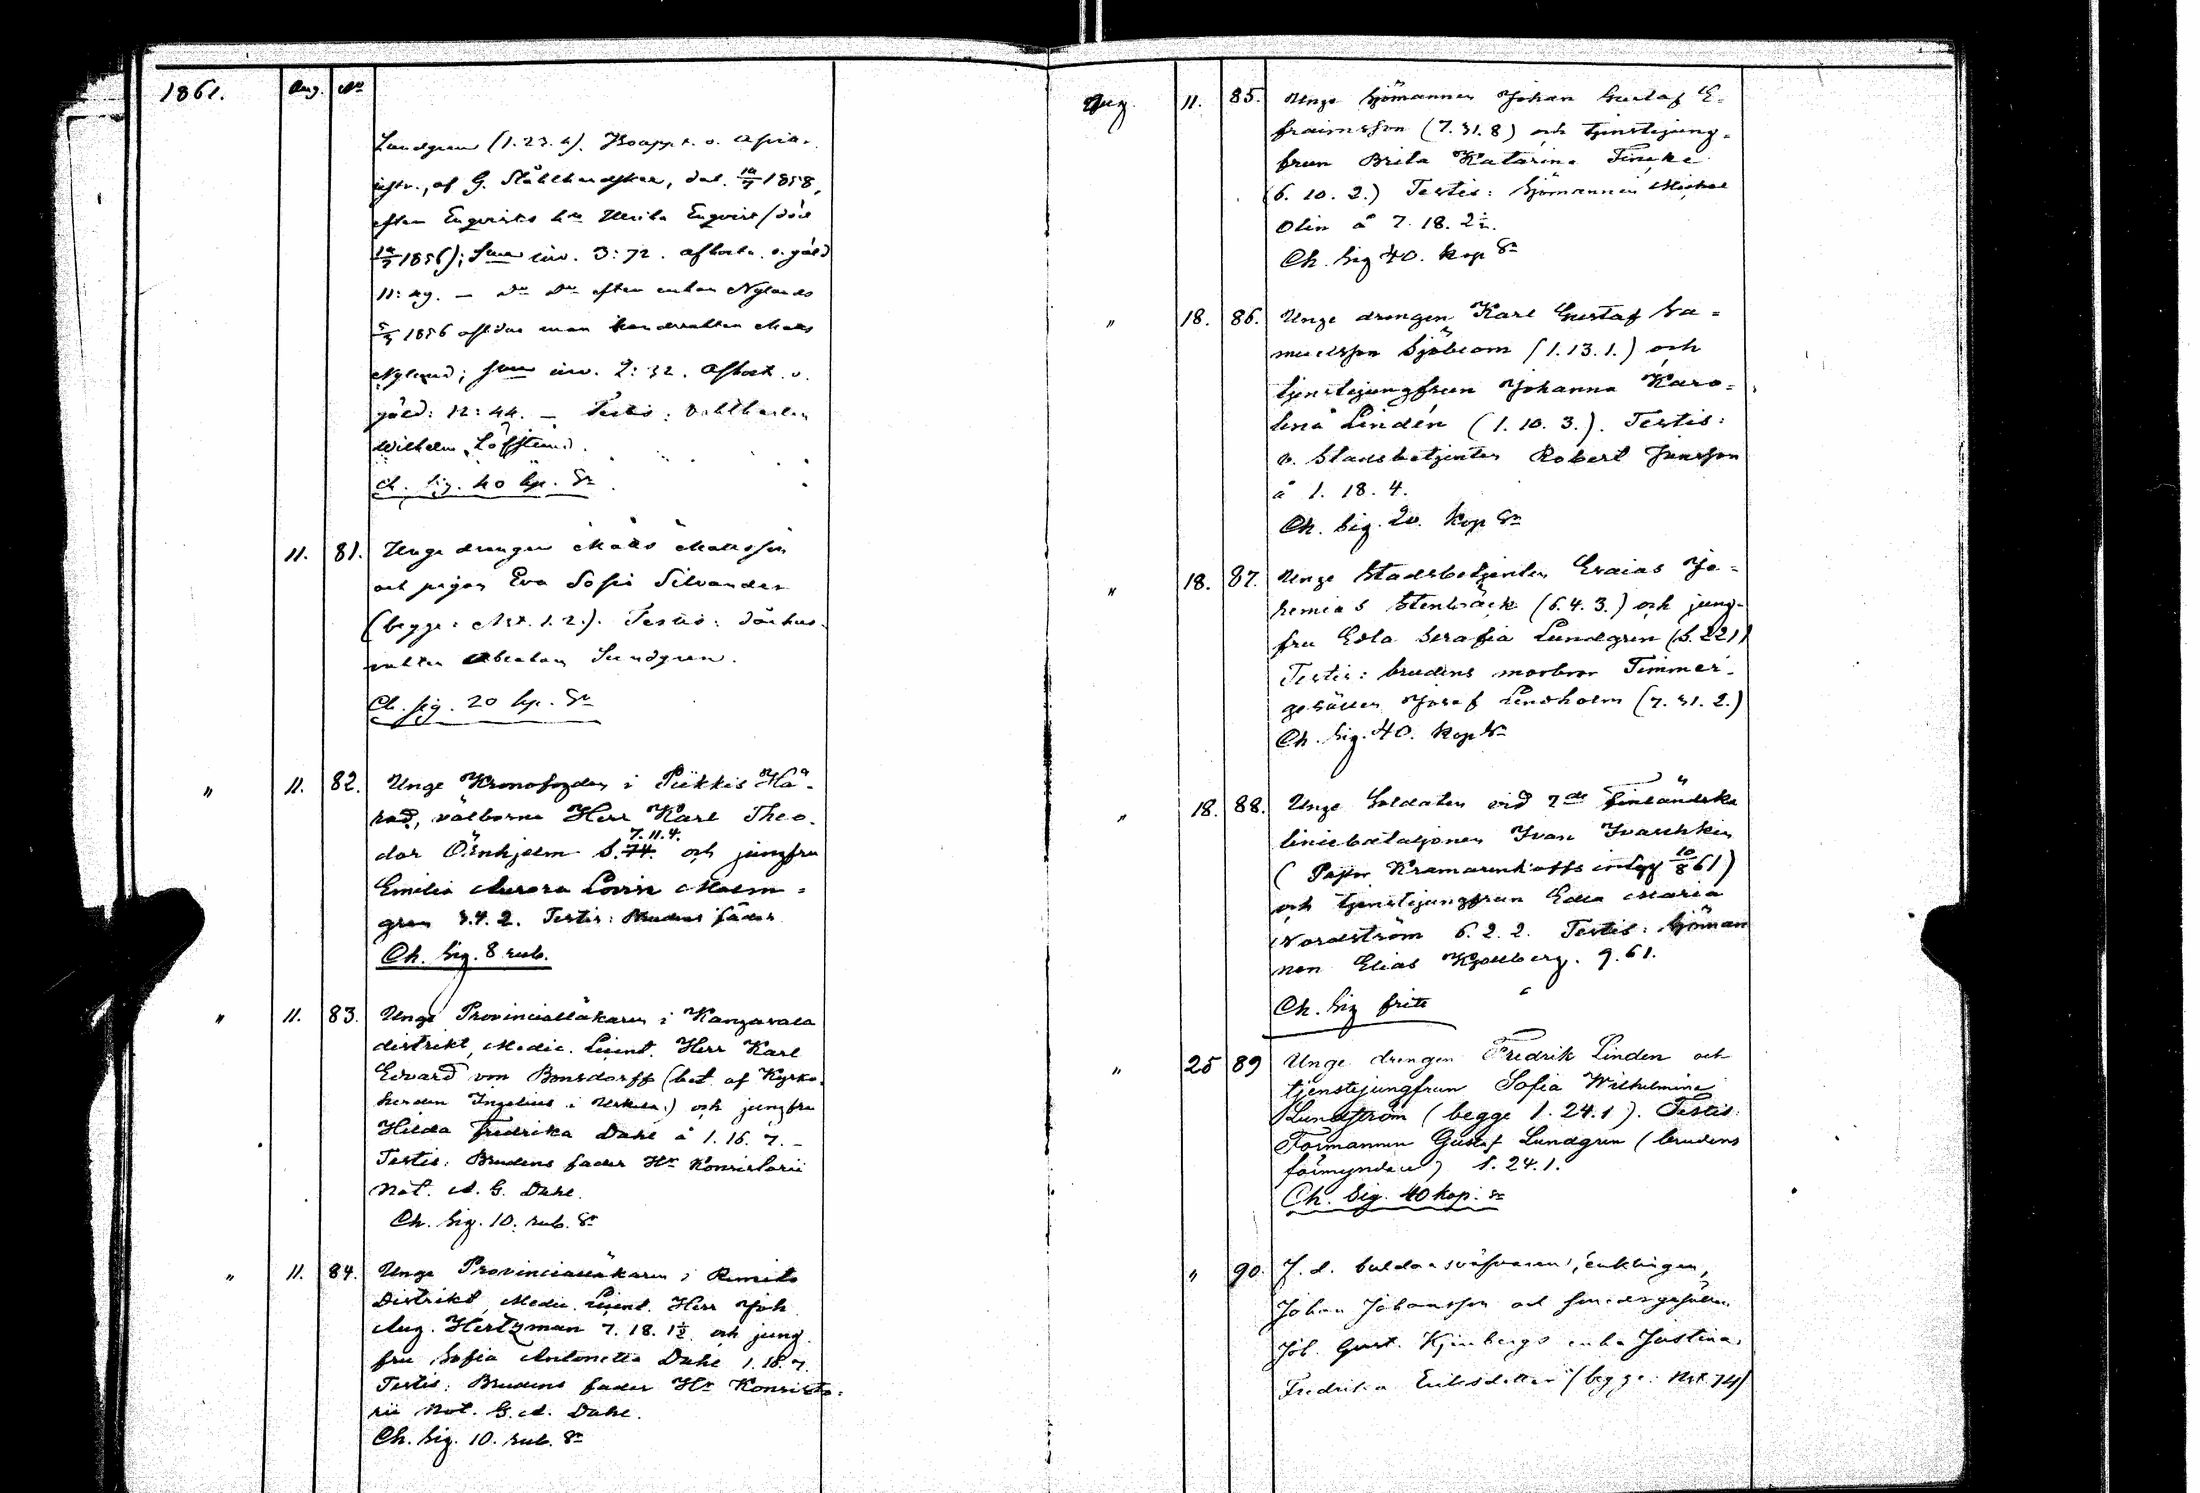 1861. Aug. No
Landgren (1.23.4).
af G. Stålhandsken, dat. 10/7 1858,
efter Enqvists Ulrika Enqvist (död
1856); inv. 3:72. afkort. o. gäld
11:49. — efter enkan Nylands
5/3 1856
Nylund; inv. 2:32. Afkort. o.
gäld: 12:44. — Testis:
Wilhelm Löfstund.
Ch. sig. 40 kp. Sr
11. 81. Unge drengen Mats Matsson
och pigan Eva Sofia Silvander
(begge: 1.2.). Testis: dårhus-
vakten Abraham Sundgren.
Ch. sig. 20 kp. Sr
" 11. 82. Unge Kronofogden i Piikkis Hä-
rad, välborne Herr Karl Theo-
7.11.4.
dor Örnhjelm S. 74. och jungfru
Emilia Aurora Lovis Malm-
gren 3.4.2. Testis: Brudens fader
Ch. Sig. 8 rub.
" 11. 83. Unge Provincialläkaren i Kangasala
distrikt, Medic. Licent. Herr Karl
Edvard von Bonsdorff (bet. af Kyrko-
herden Ingelius i Urkala) och jungfru
Hilda Fredrika Dahl å 1.16.7. —
Testis: Brudens fader Hr Konsistorii
Not. A. G. Dahl.
Ch. Sig. 10. rub. Sr
" 11. 84. Unge Provincialläkaren i Rimito
Distrikt, Medic. Licent. Herr Joh.
Aug. Hertzman 7.18.1½ och jung-
fru Sofia Antonetta Dahl 1.16.7.
Testis: Brudens fader Hr Konsisto-
rii Not. G. A. Dahl.
Ch. Sig. 10. rub. Sr
Aug. 11. 85. Unge Sjömannen Johan Gustaf E-
fraimsson (7.31.8) och tjenstejung-
frun Brita Katarina Fincke
(6.10.2.) Testis: Sjömannen Michel
Olin å 7.18.2½.
Ch. Sig 40. kop Sr
" 18. 86. Unge drengen Karl Gustaf Sa-
muelsson Sjöblom (1.13.1.) och
tjenstejungfrun Johanna Karo-
lina Lindén (1.10.3.). Testis:
v. Stadsbetjenten Robert Jansson
å 1.18.4.
Ch. Sig. 20. kop Sr
" 18. 87. Unge Stadsbetjenten Esaias Je-
remias Stenbäck (6.4.3.) och jung-
fru Edla Serafia Lundgren (S.221)
Testis: brudens morbror Timmer-
gesällen Josef Lindholm (7.31.2.)
Ch. Sig. 40. kop Sr
" 18. 88. Unge Soldaten vid 7de Finländska
liniebataljonen Ivan Ivaschkin
( Kramarenkoffs intyg 10/8 61)
och tjenstejungfrun Edla Maria
Nordström 6.2.2. Testis: Sjöman-
nen Elias Kjellberg. 9.61.
Ch. Sig fritt
" 25 89 Unge drengen Fredrik Linden och
tjenstejungfrun Sofia Wilhelmina
Lundström (begge 1.24.1). Testis:
Formannen Gustaf Lundgren (brudens
förmyndare) 1.24.1.
Ch. Sig. 40 kop. Sr
" 90. F. d. buldansväfvaren, enklingen,
Johan Johansson och smedsgesällen
Joh. Gust. Kjinbergs enka Justina
Fredrika Eriksdotter (begge: 74)